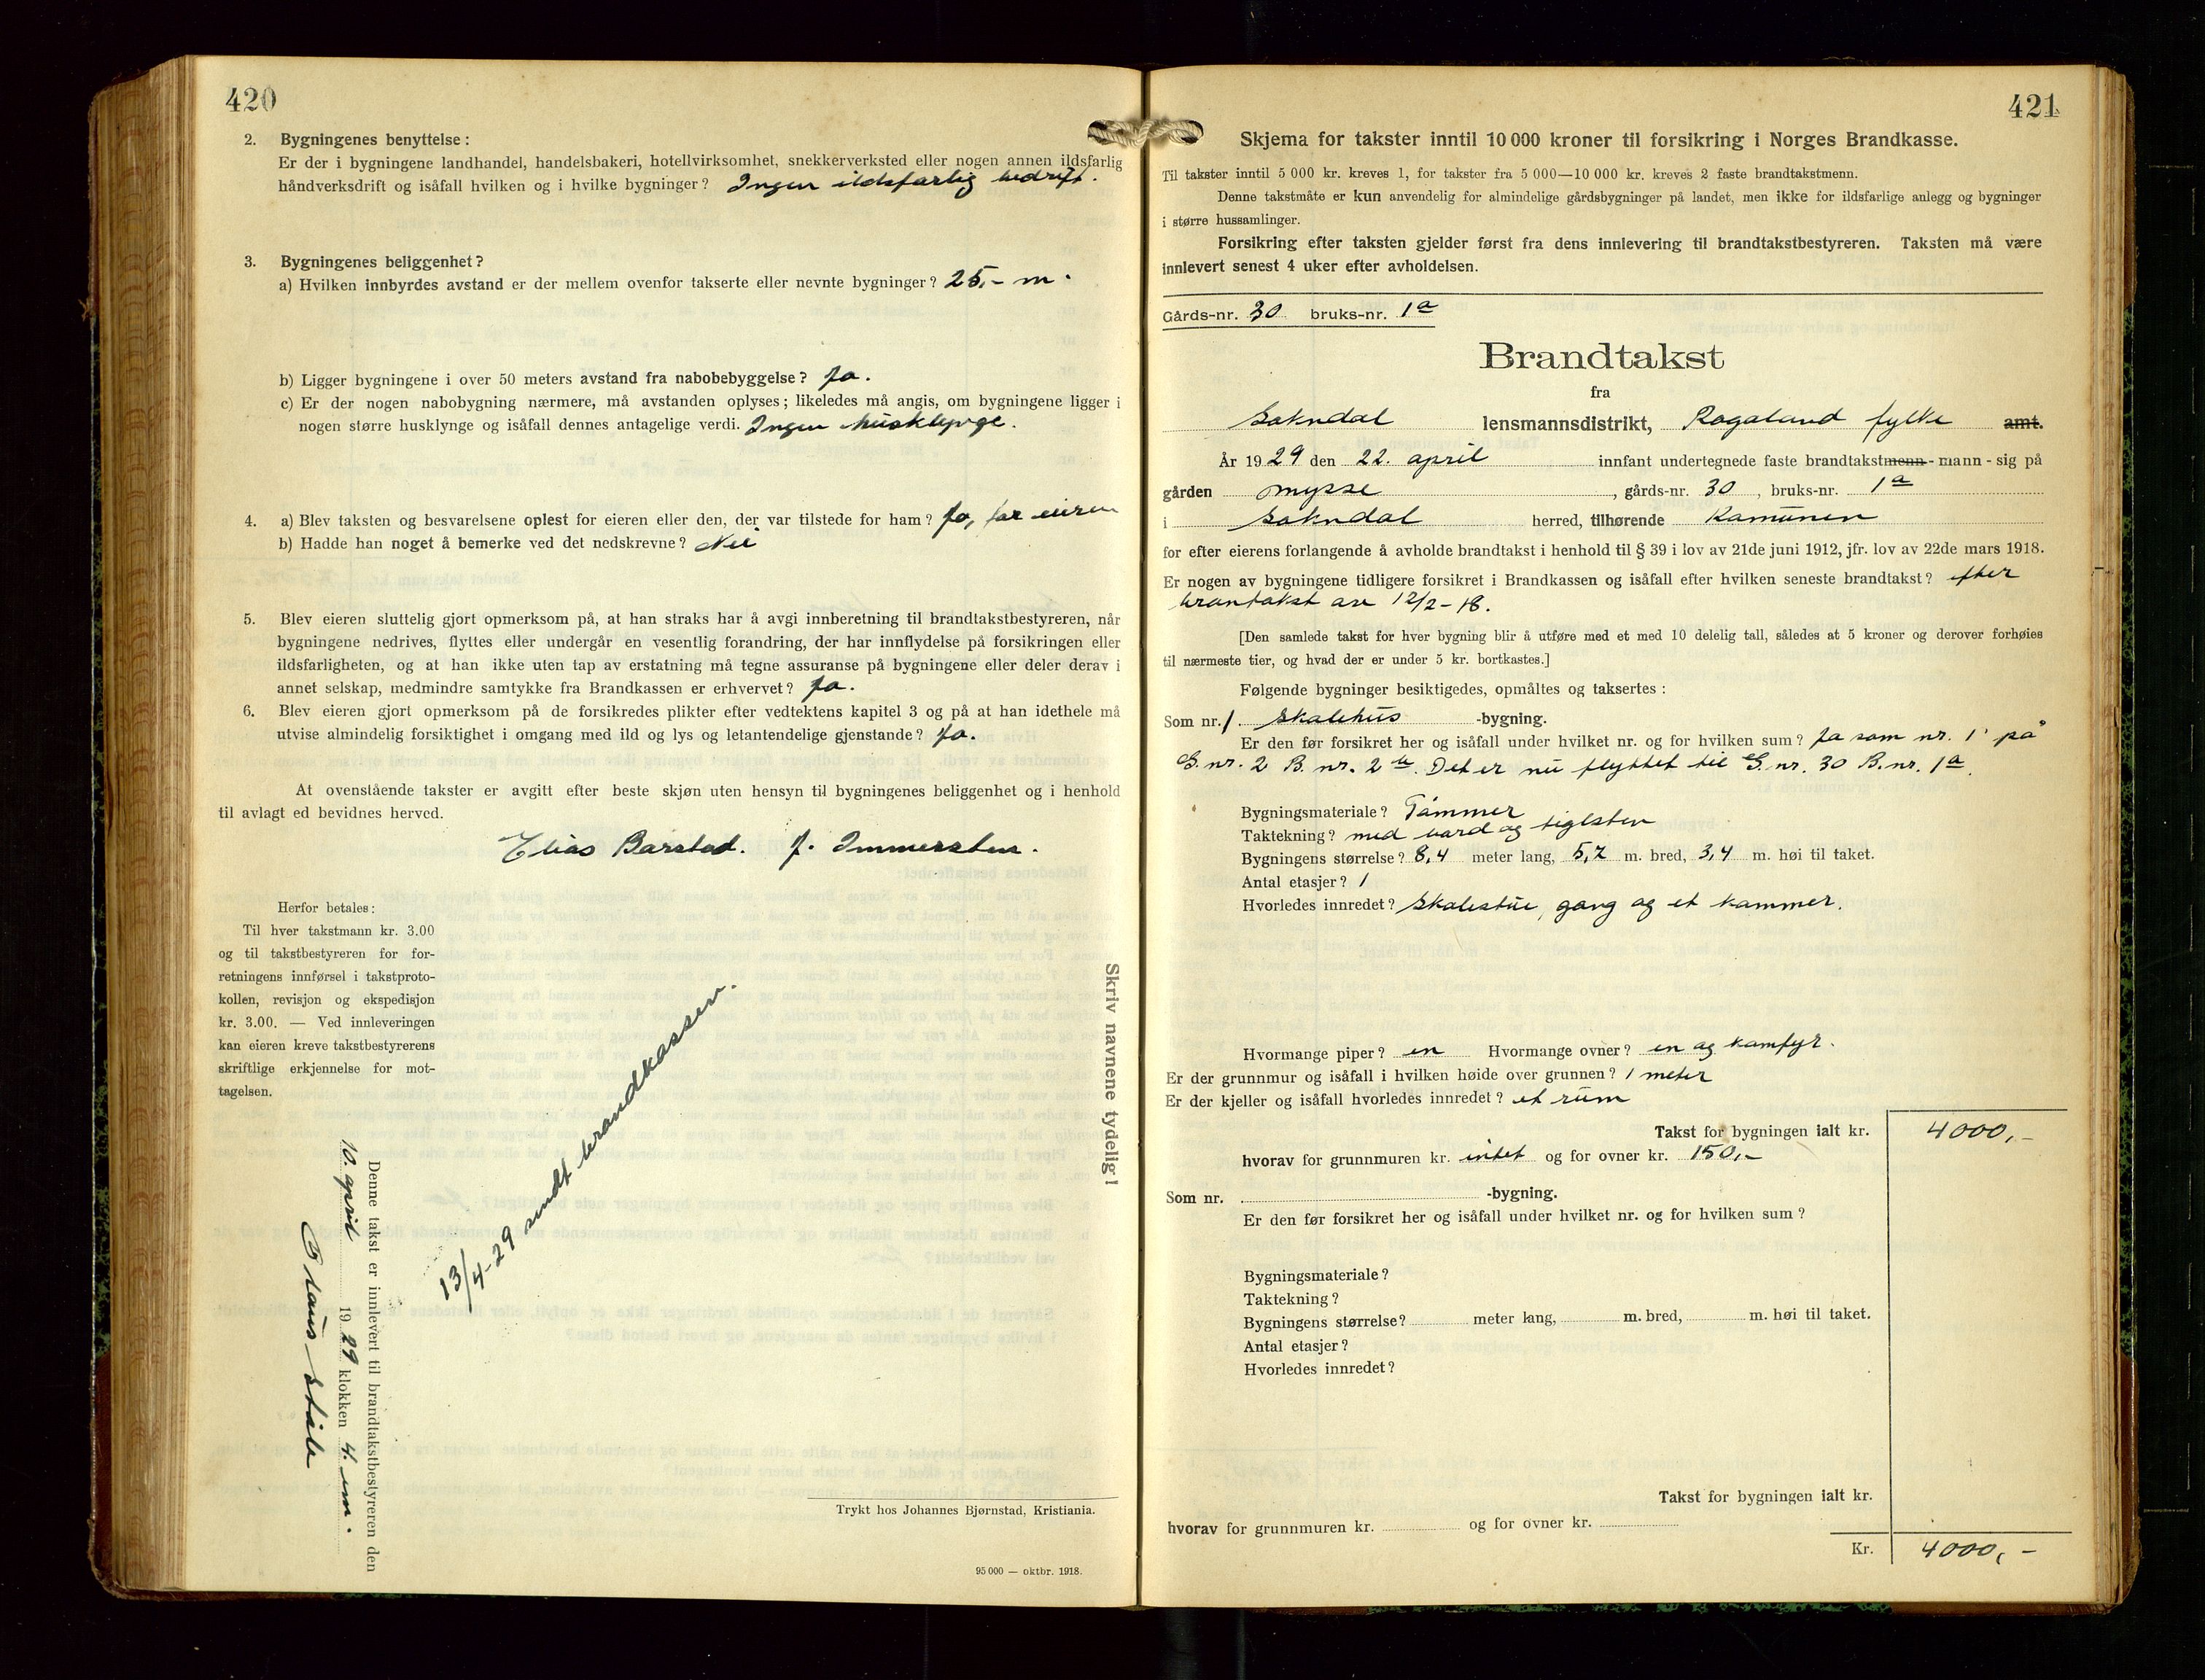 420
2. Bygningenes benyttelse:
Er der i bygningene landhandel, handelsbakeri, hotellvirksomhet, snekkerverksted eller nogen annen ildsfarlig
håndverksdrift og isåfall hvilken og i hvilke bygninger? Ingen ildsfarlig bedrift.
3. Bygningenes beliggenhet?
a) Hvilken innbyrdes avstand er der mellem ovenfor takserte eller nevnte bygninger? 25,- m.
b) Ligger bygningene i over 50 meters avstand fra nabobebyggelse? Ja.
c) Er der nogen nabobygning nærmere, må avstanden oplyses; likeledes må angis, om bygningene ligger i
nogen større husklynge og isåfall dennes antagelige verdi. Ingen husklynge.
4. a) Blev taksten og besvarelsene oplest for eieren eller den, der var tilstede for ham? Ja, for eieren
b) Hadde han noget å bemerke ved det nedskrevne? Nei
5. Blev eieren sluttelig gjort opmerksom på, at han straks har å avgi innberetning til brandtakstbestyreren, når
bygningene nedrives, flyttes eller undergår en vesentlig forandring, der har innflydelse på forsikringen eller
ildsfarligheten, og at han ikke uten tap av erstatning må tegne assuranse på bygningene eller deler derav i
annet selskap, medmindre samtykke fra Brandkassen er erhvervet? Ja.
6. Blev eieren gjort opmerksom på de forsikredes plikter efter vedtektens kapitel 3 og på at han idethele må
utvise almindelig forsiktighet i omgang med ild og lys og letantendelige gjenstande? Ja.
At ovenstående takster er avgitt efter beste skjøn uten hensyn til bygningenes beliggenhet og i henhold
til avlagt ed bevidnes herved.
Elias Barstad. J. Immerstein.
Herfor betales:
Til hver takstmann kr. 3.00
og til takstbestyreren for for-
retningens innførsel i takstproto-
kollen, revisjon og ekspedisjon
kr. 3.00. — Ved innleveringen
kan eieren kreve takstbestyrerens
skriftlige erkjennelse for mot-
tagelsen.
Skriv navnene tydelig!
13/4-29 sendt brandkassen.
Denne takst er innlevert til brandtakstbestyreren den
10. april 1929 klokken 4. em.
Trykt hos Johannes Bjørnstad, Kristiania.
95 000 — oktbr. 1918.
421
Skjema for takster inntil 10 000 kroner til forsikring i Norges Brandkasse.
Til takster inntil 5 000 kr. kreves 1, for takster fra 5 000—10 000 kr. kreves 2 faste brandtakstmenn.
Denne takstmåte er kun anvendelig for almindelige gårdsbygninger på landet, men ikke for ildsfarlige anlegg og bygninger
i større hussamlinger.
Forsikring efter taksten gjelder først fra dens innlevering til brandtakstbestyreren. Taksten må være
innlevert senest 4 uker efter avholdelsen.
Gårds-nr. 30 bruks-nr. 1a
Brandtakst
fra
Sokndal lensmannsdistrikt, Rogaland fylke amt.
År 1929 den 22. april innfant undertegnede faste brandtakstmenn - mann - sig på
gården Mysse, gårds-nr. 30, bruks-nr. 1a
i Sokndal herred, tilhørende Kamunen
for efter eierens forlangende å avholde brandtakst i henhold til § 39 i lov av 21de juni 1912, jfr. lov av 22de mars 1918.
Er nogen av bygningene tidligere forsikret i Brandkassen og isåfall efter hvilken seneste brandtakst? efter
brantakst av 12/2-18.
[Den samlede takst for hver bygning blir å utføre med et med 10 delelig tall, således at 5 kroner og derover forhøies
til nærmeste tier, og hvad der er under 5 kr. bortkastes.]
Følgende bygninger besiktigedes, opmåltes og taksertes:
Som nr. 1 Skolehus -bygning.
Er den før forsikret her og isåfall under hvilket nr. og for hvilken sum? Ja som nr. 1 på
G. nr. 2 B. nr. 2 b. Det er nu flyttet til G. nr. 30 B. nr. 1a.
Bygningsmateriale? Tømmer
Taktekning? med bord og teglsten
Bygningens størrelse? 8,4 meter lang, 5,7 m. bred, 3,4 m. høi til taket.
Antal etasjer? 1
Hvorledes innredet? Skolestue, gang og et kammer.
Hvormange piper? en Hvormange ovner? en og kamfyr.
Er der grunnmur og isåfall i hvilken høide over grunnen? 1 meter
Er der kjeller og isåfall hvorledes innredet? et rum
Takst for bygningen ialt kr. 4000,-
hvorav for grunnmuren kr. intet og for ovner kr. 150,-
Som nr. -bygning.
Er den før forsikret her og isåfall under hvilket nr. og for hvilken sum?
Bygningsmateriale?
Taktekning?
Bygningens størrelse? meter lang, m. bred, m. høi til taket.
Antal etasjer?
Hvorledes innredet?
Takst for bygningen ialt kr.
hvorav for grunnmuren kr. og for ovner kr.
Kr. 4000,-